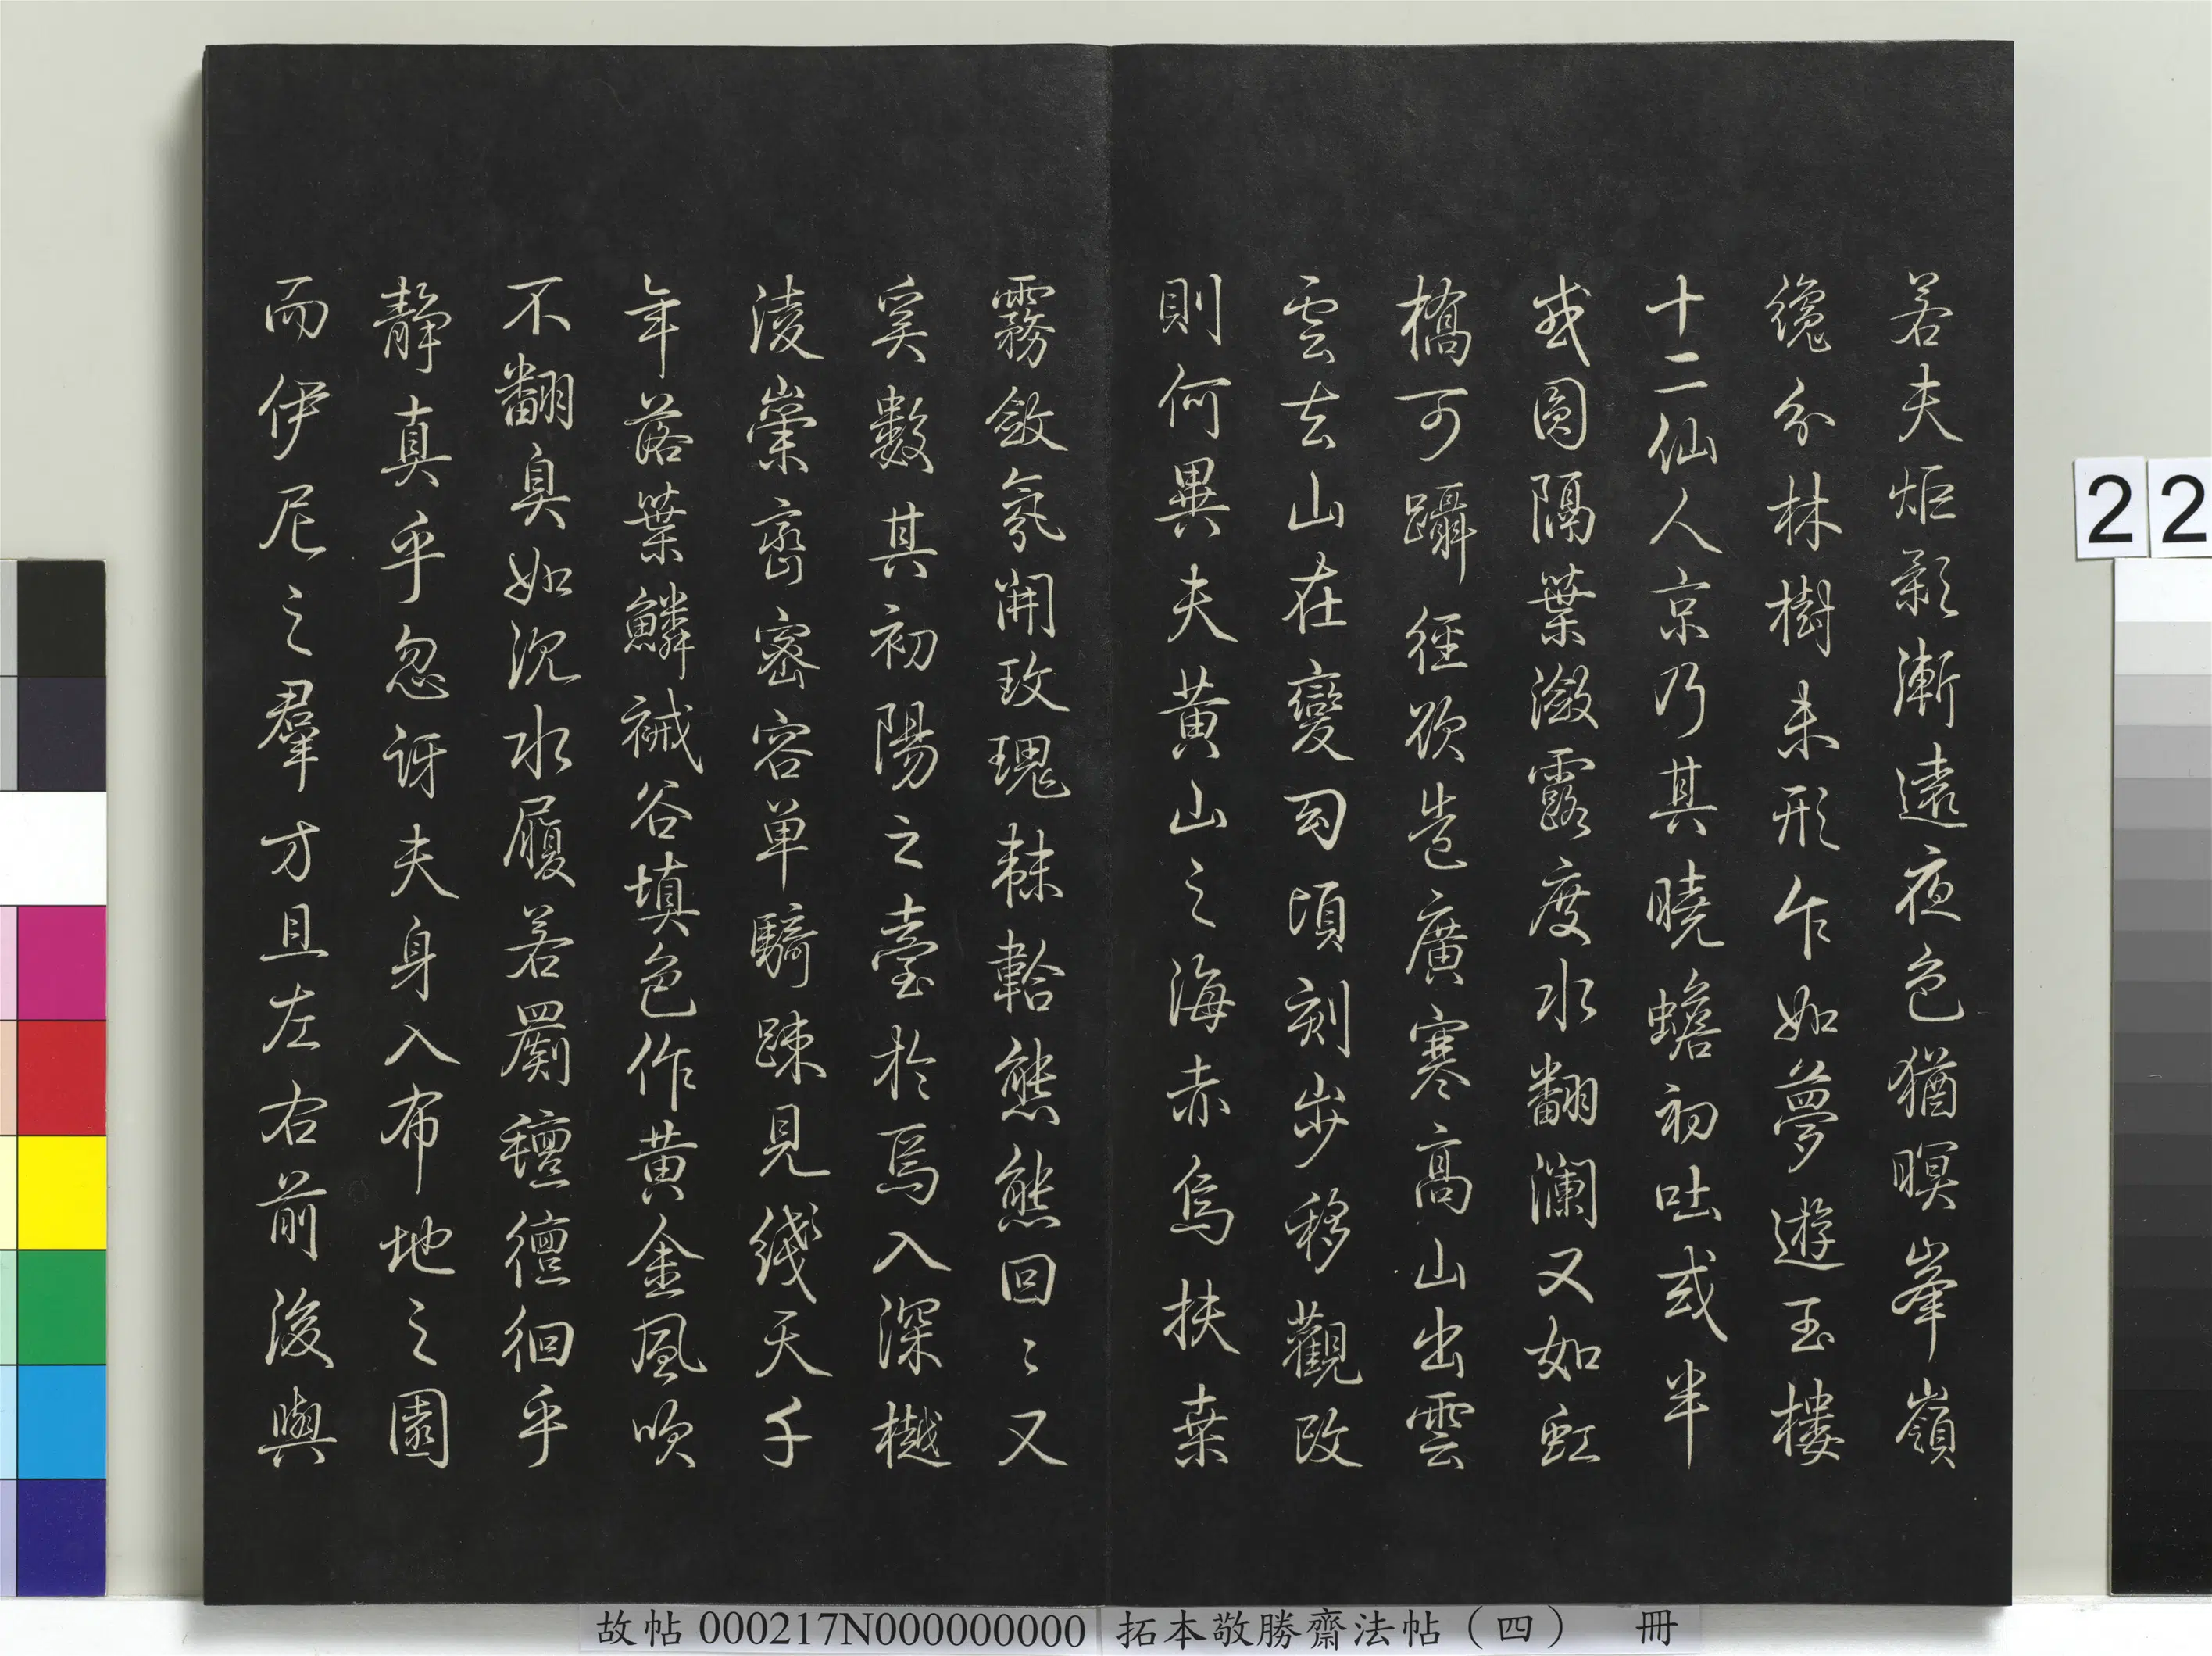 若夫炬影漸遠夜色猶暝峯嶺
纔分林樹未形乍如夢遊玉樓
十二仙人京乃其曉蟾初吐或半
或圓隔葉潋露度水翻瀾又如虹
橋可躡徑欲造廣寒高山出雲
雲去山在變幻頃刻步移觀改
則何異夫黃山之海赤烏扶桑
霧斂氛開玫瑰靺鞈熊熊回〻又
奚數其初陽之臺於焉入深樾
淩崇巒密容單騎疎見綫天千
年落葉鱗裓谷填色作黃金風吹
不翻臭如沉水履若罽氊儃佪乎
靜真乎忽訝夫身入布地之園
而伊尼之羣方且左右前後與
22
故帖 000217N000000000 拓本敬勝齋法帖（四） 冊